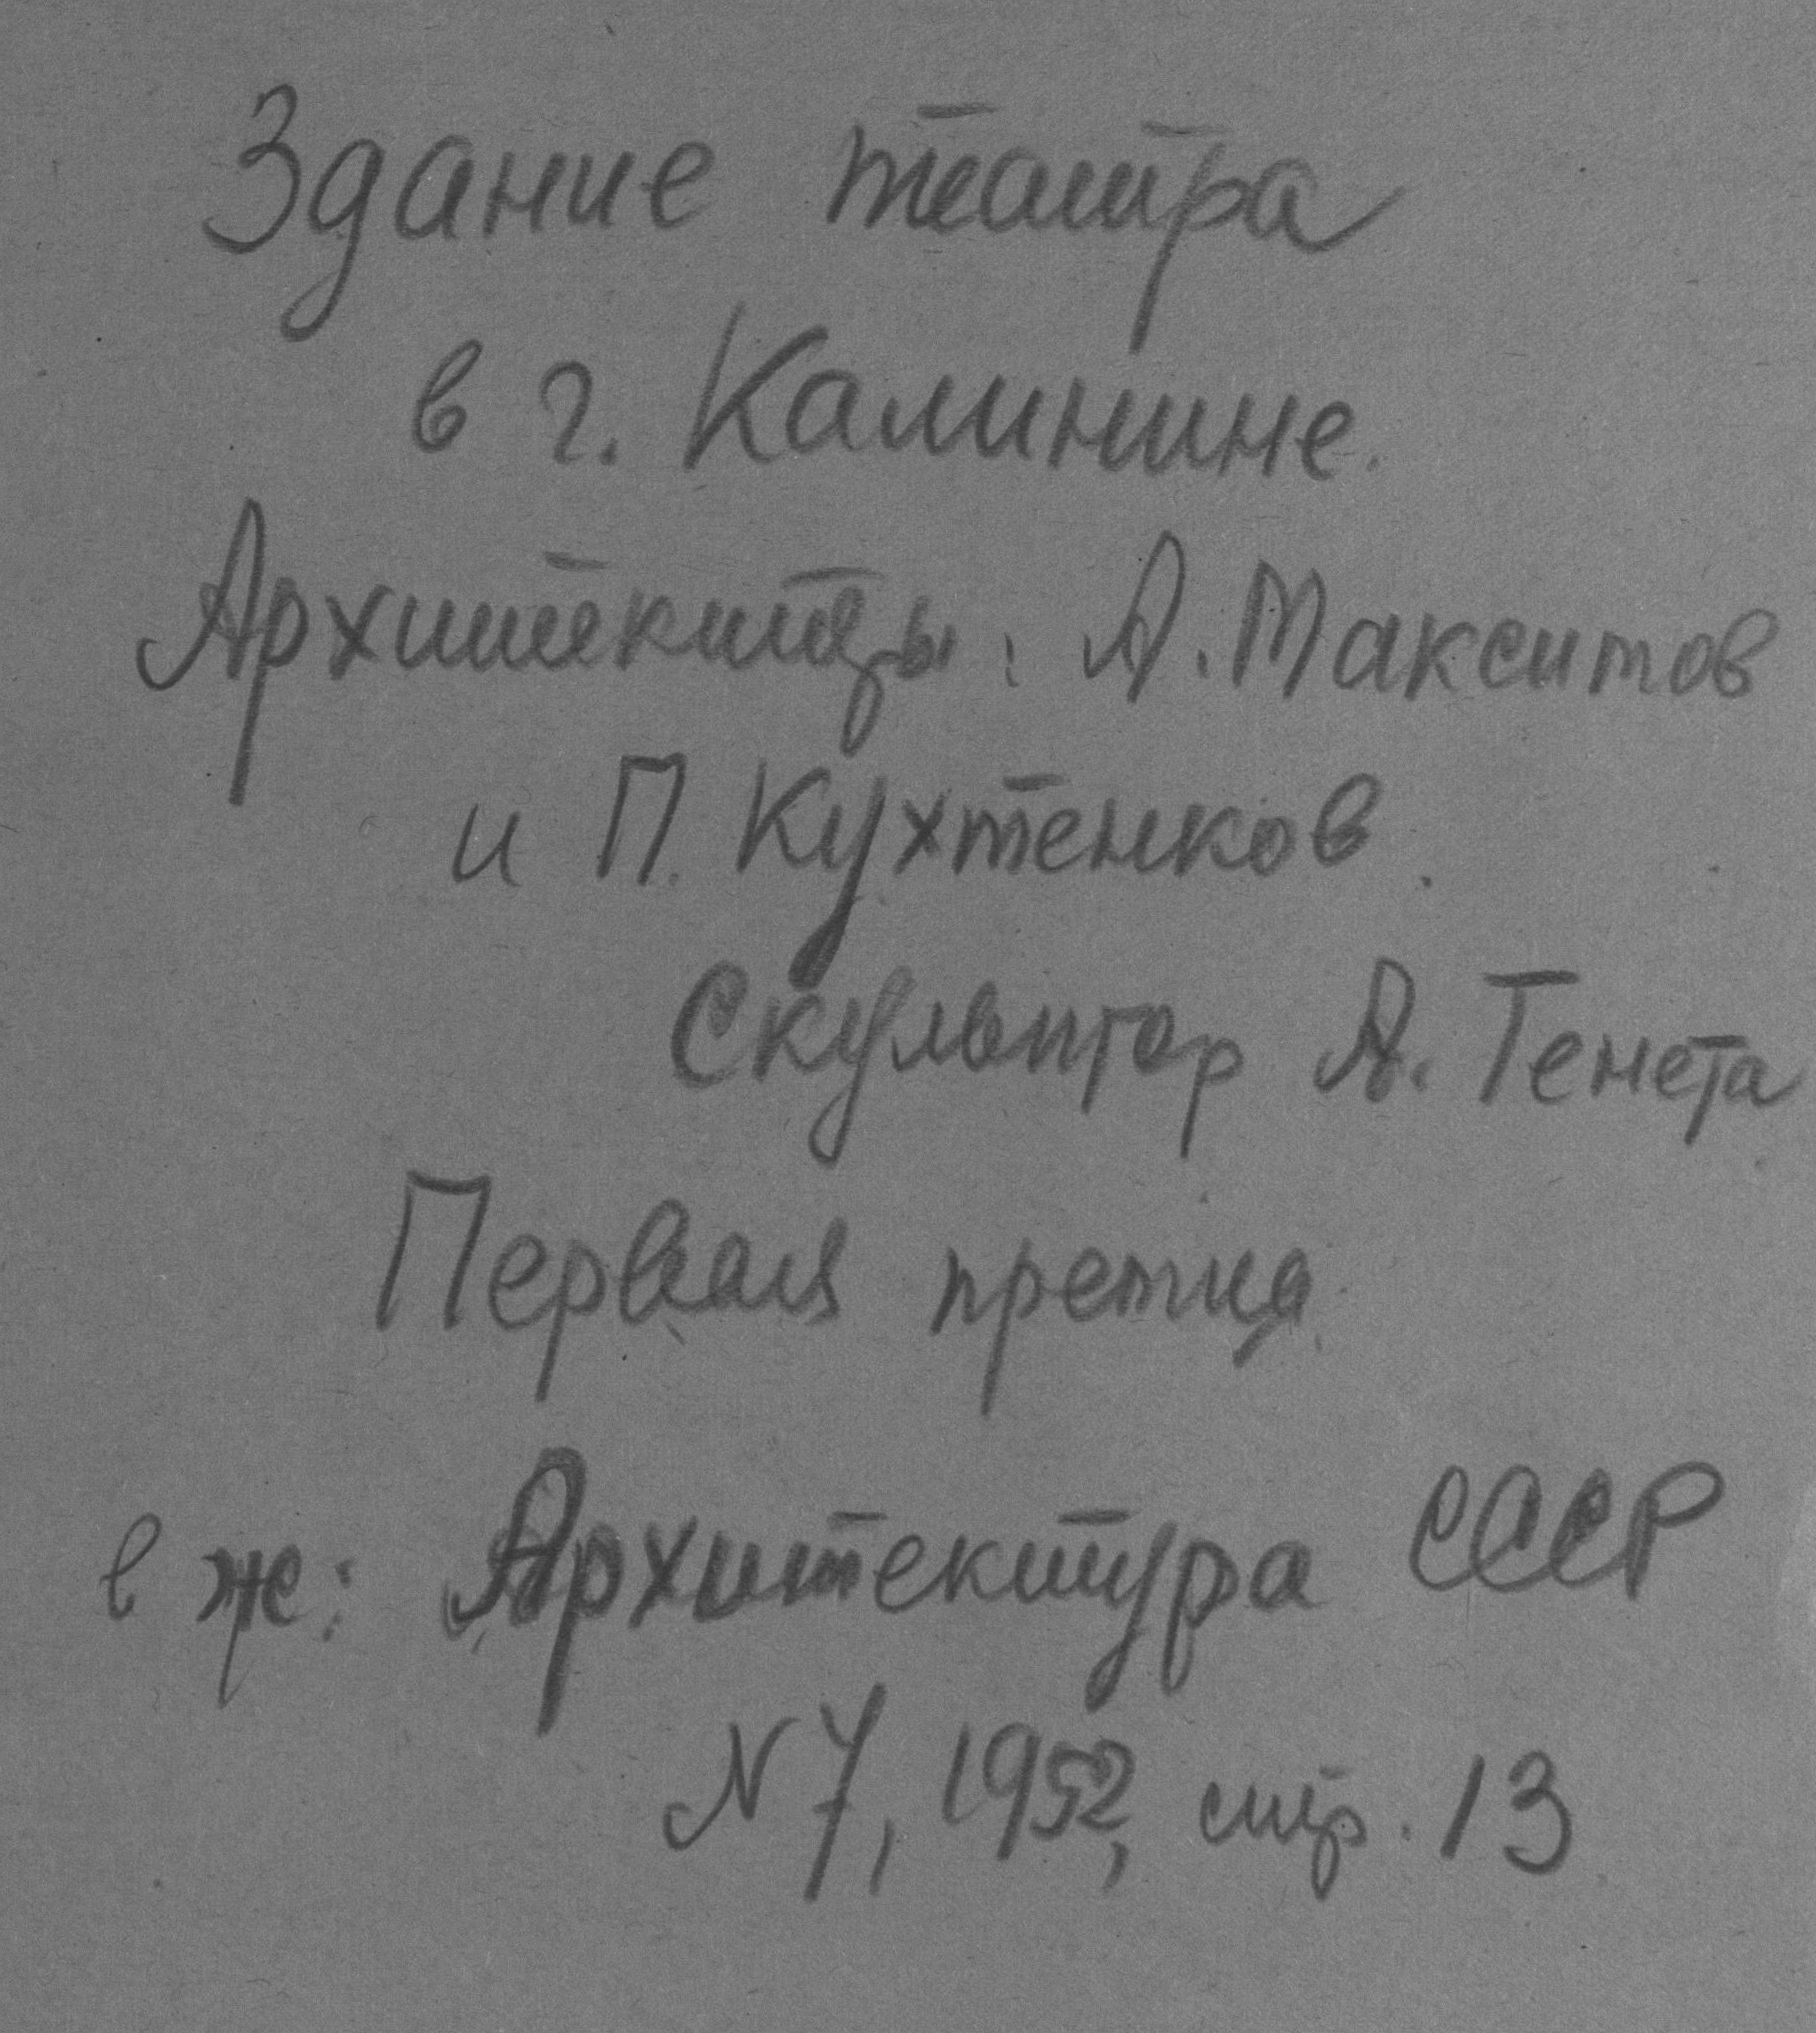 Здание театра
в г. Калинине.
Архитекторы: А. Максимов
и П. Кухтенков.
Скульптор А. Тенета
Первая премия.
в ж: Архитектура СССР
N 7, 1952, стр. 13